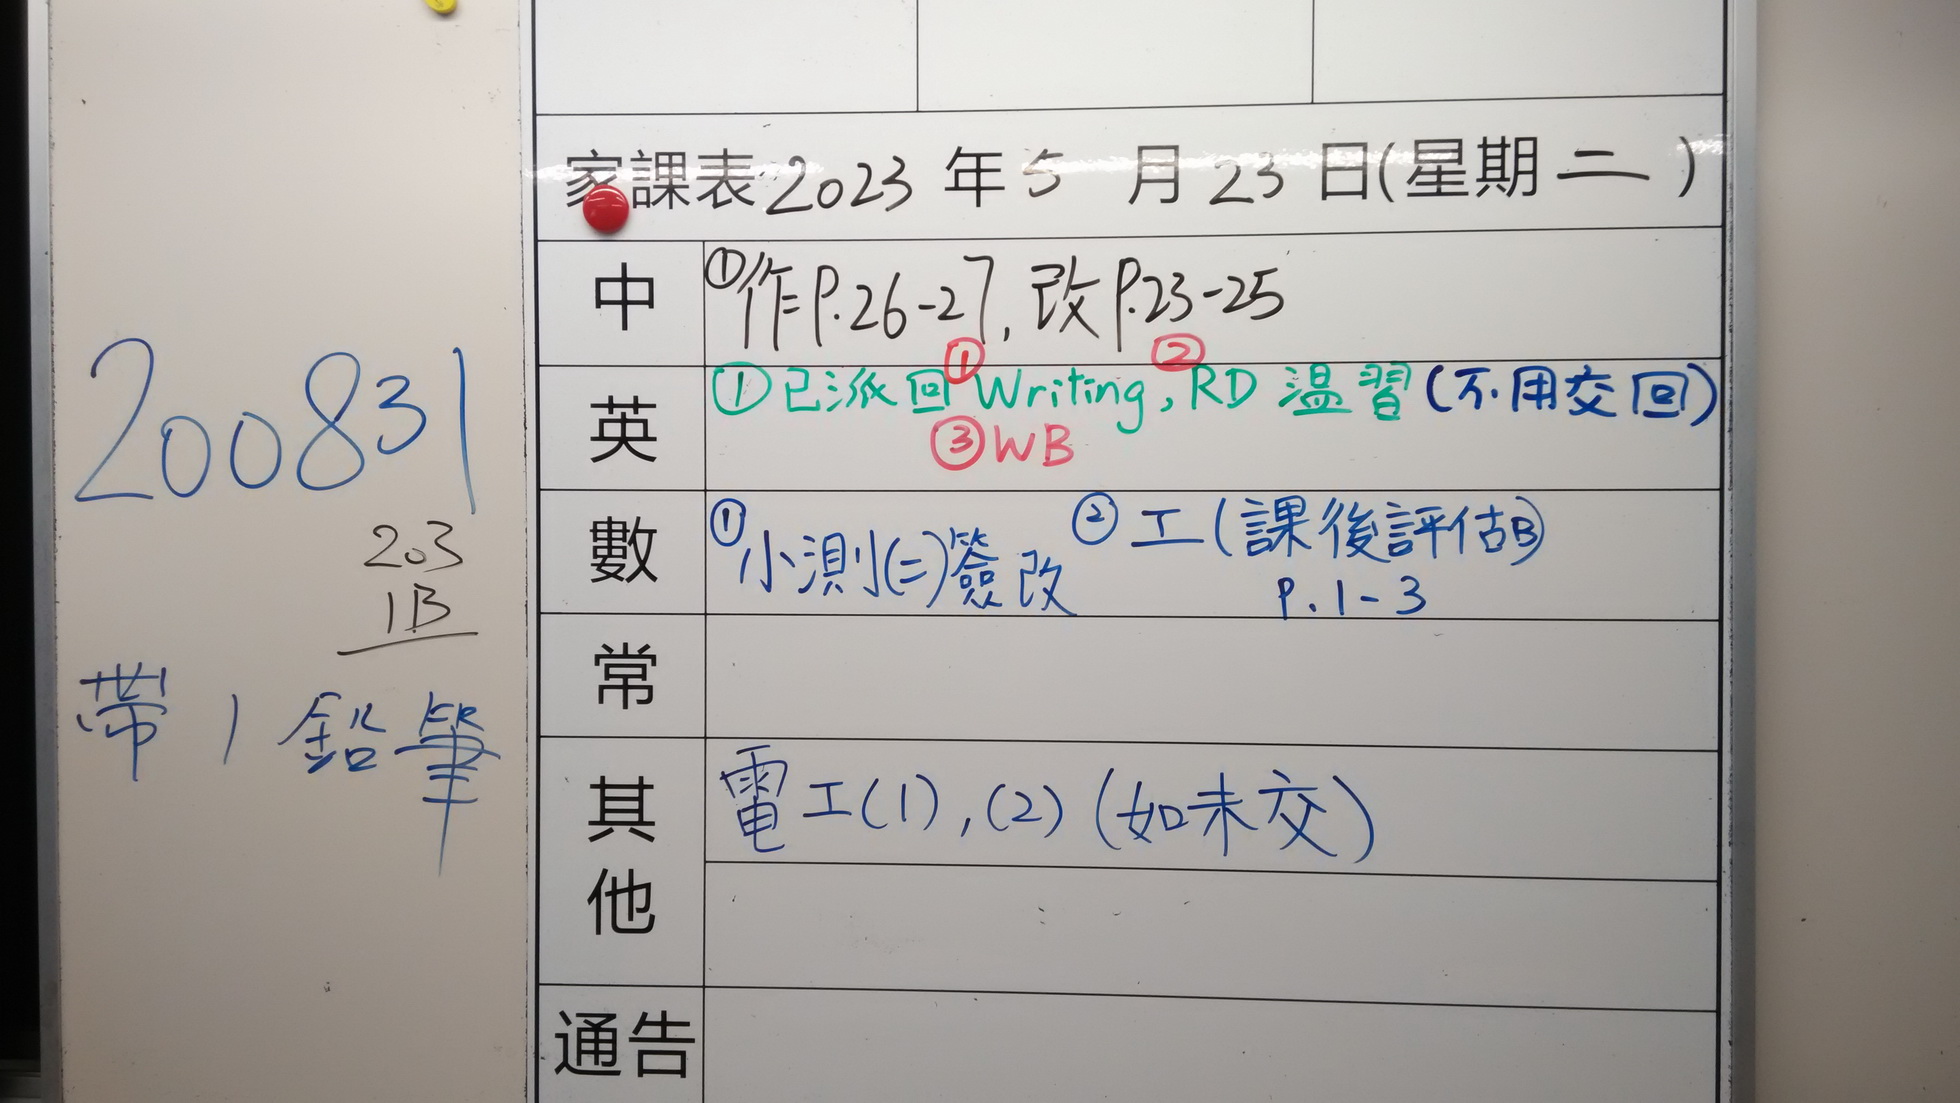 家課表2023年5月23日(星期二)
中
①作P.26-27, 改P.23-25
英
①已派回①Writing, ②RD 溫習(不用交回)
③WB
數
①小測(二)簽改 ②工(課後評估B)
P.1-3
常
其他
電工(1), (2) (如未交)
通告
200831
203
1B
帶1鉛筆